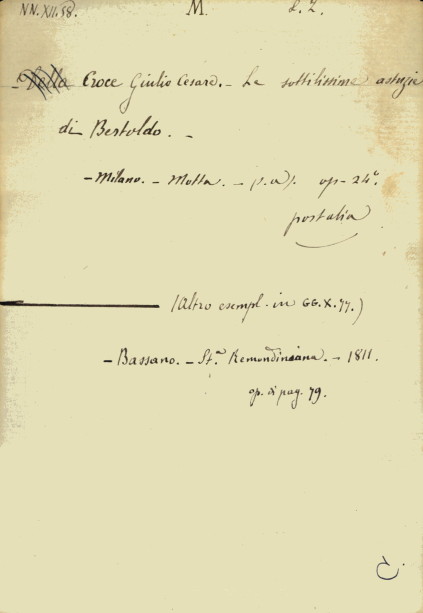 NN.XII.58. M. L. Z.
- Della Croce Giulio Cesare. - Le sottilissime astuzie
di Bertoldo. -
- Milano. - Motta. - op. 24°.
(Altro esempl. in GG.X.77.)
- Bassano. - St.ª Remondiniana. - 1811.
op. di pag. 79.